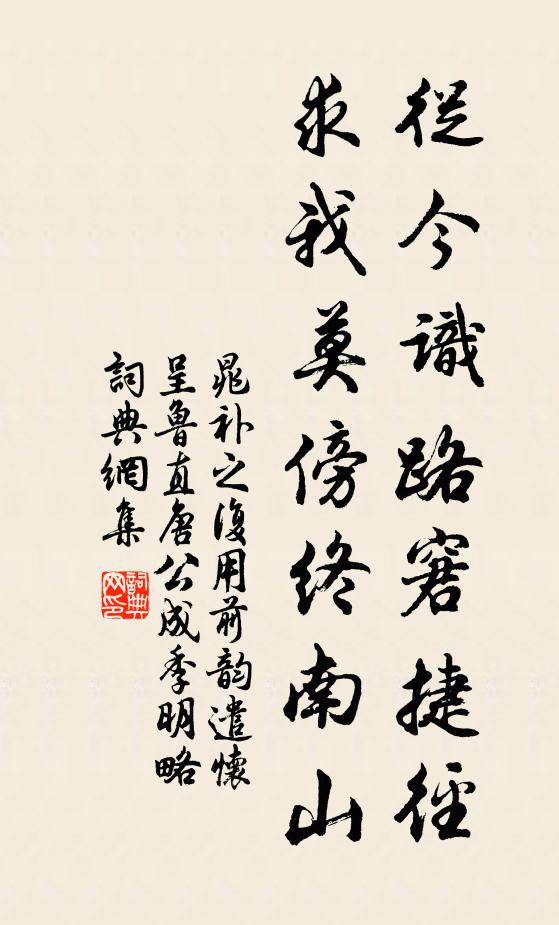 從今識路窘捷徑
求我莫傍終南山
晁补之復用前韵遣懷
呈魯直唐公成季明略
詞典網集
詞典
网印